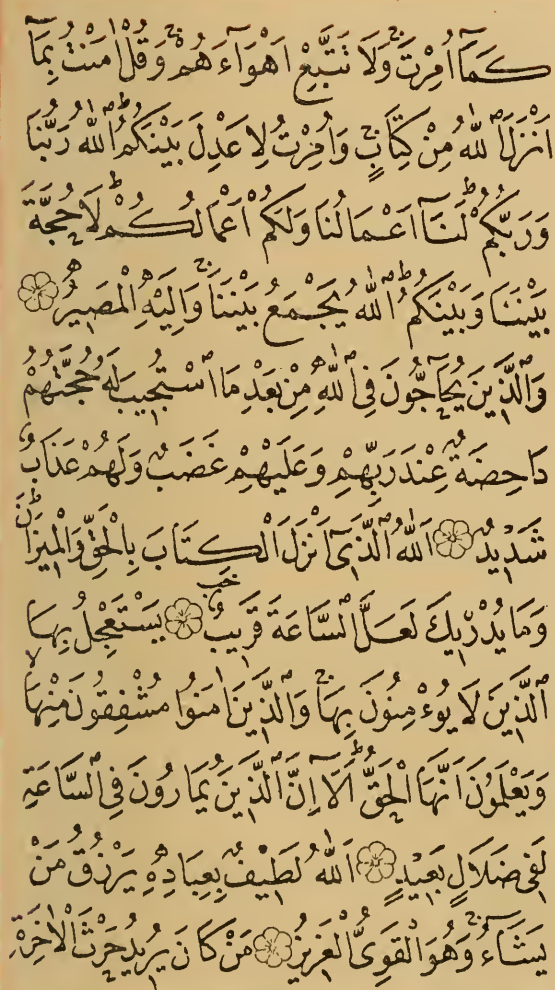 كَمَآ اُمِرْتَ ۚ وَلَا تَتَّبِعْ اَهْوَآءَهُمْ ۚ وَقُلْ اٰمَنْتُ بِمَآ
اَنْزَلَ اللّٰهُ مِنْ كِتَابٍ ۚ وَاُمِرْتُ لِاَعْدِلَ بَيْنَكُمْ ؕ اَللّٰهُ رَبُّنَا
وَرَبُّكُمْ ؕ لَنَآ اَعْمَالُنَا وَلَكُمْ اَعْمَالُكُمْ ؕ لَا حُجَّةَ
بَيْنَنَا وَبَيْنَكُمْ ؕ اَللّٰهُ يَجْمَعُ بَيْنَنَا ۚ وَاِلَيْهِ الْمَصِيرُ
وَالَّذِينَ يُحَآجُّونَ فِي اللّٰهِ مِنْ بَعْدِ مَا اسْتُجِيبَ لَهُ حُجَّتُهُمْ
دَاحِضَةٌ عِنْدَ رَبِّهِمْ وَعَلَيْهِمْ غَضَبٌ وَلَهُمْ عَذَابٌ
شَدِيدٌ اَللّٰهُ الَّذِيٓ اَنْزَلَ الْكِتَابَ بِالْحَقِّ وَالْمِيزَانَ ؕ
وَمَا يُدْرِيكَ لَعَلَّ السَّاعَةَ قَرِيبٌ يَسْتَعْجِلُ بِهَا
الَّذِينَ لَا يُؤْمِنُونَ بِهَا ۚ وَالَّذِينَ اٰمَنُوا مُشْفِقُونَ مِنْهَا ۙ
وَيَعْلَمُونَ اَنَّهَا الْحَقُّ ؕ اَلَآ اِنَّ الَّذِينَ يُمَارُونَ فِي السَّاعَةِ
لَفِي ضَلَالٍ بَعِيدٍ اَللّٰهُ لَطِيفٌ بِعِبَادِهِ يَرْزُقُ مَنْ
يَشَآءُ ۚ وَهُوَ الْقَوِيُّ الْعَزِيزُ مَنْ كَانَ يُرِيدُ حَرْثَ الْاٰخِرَةِ